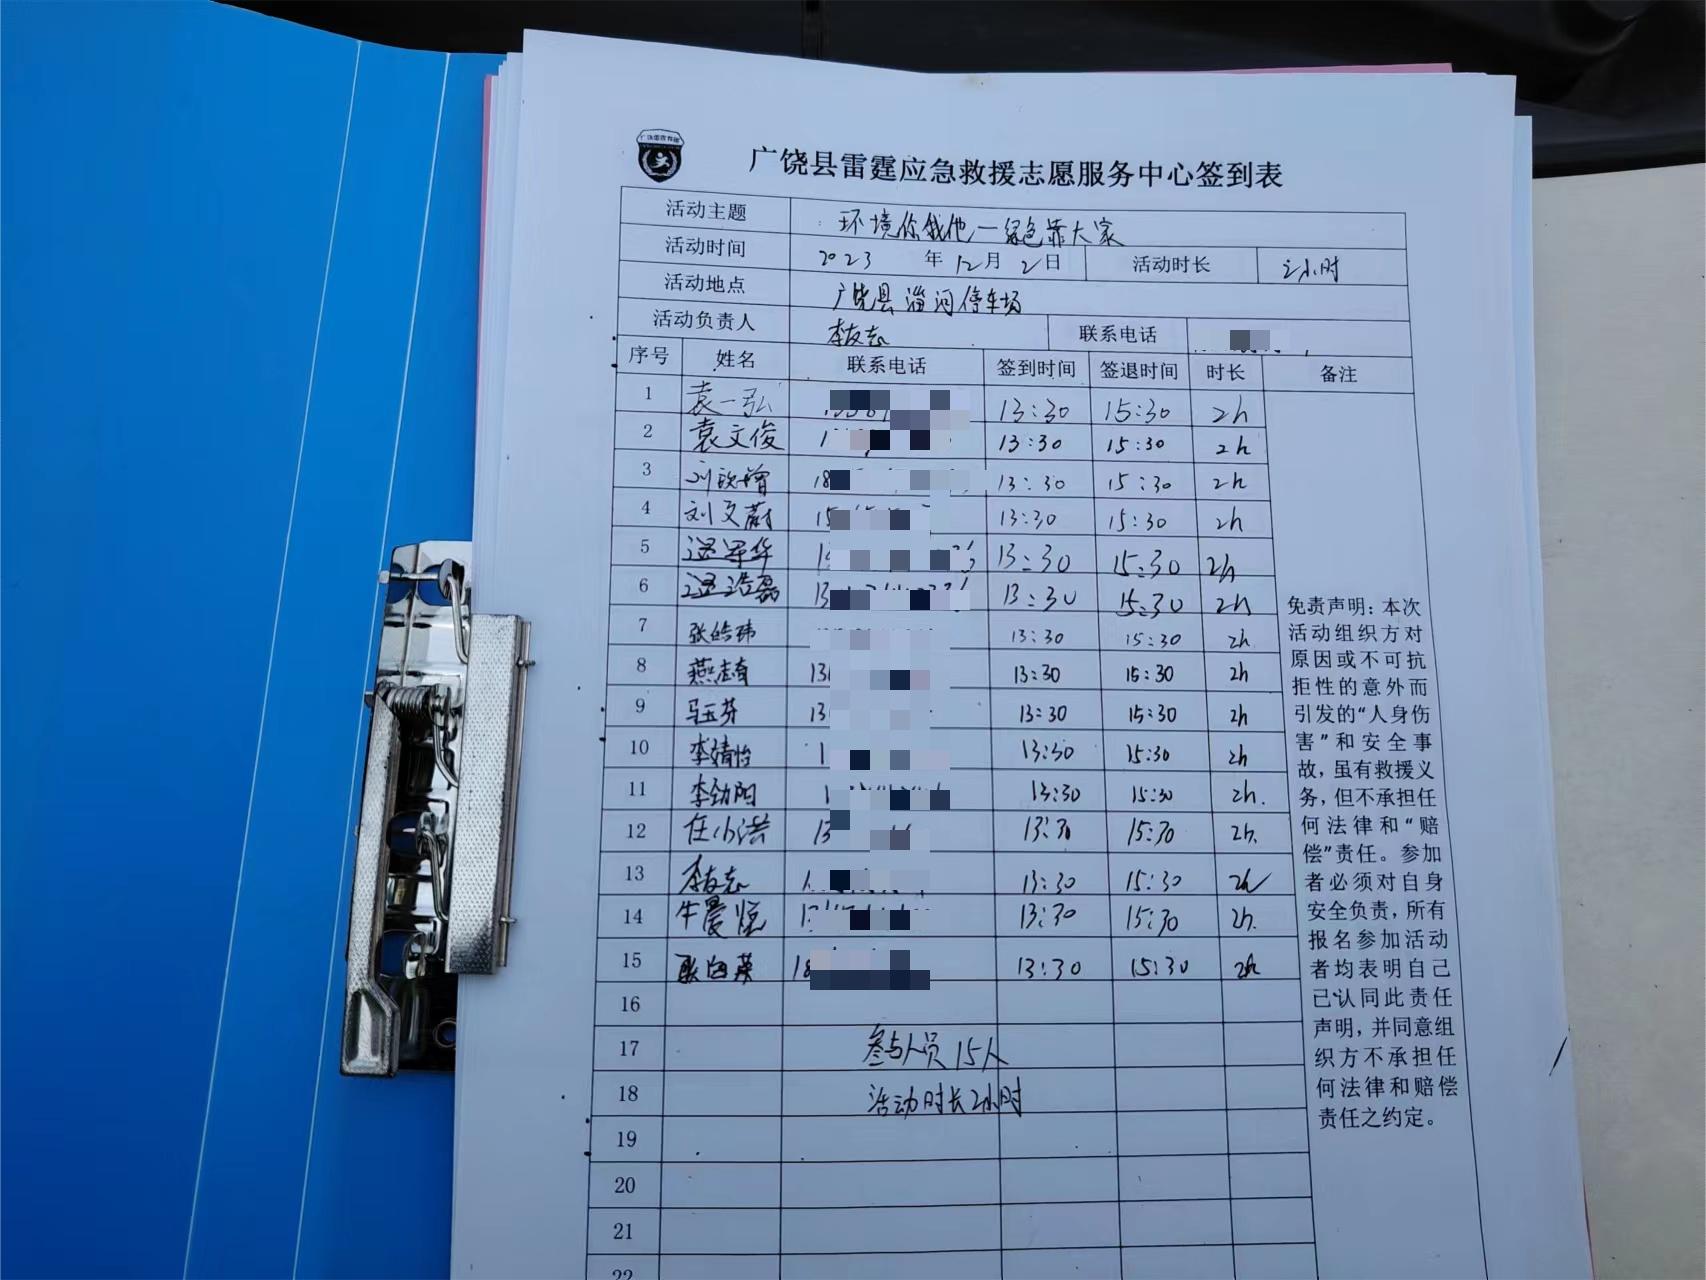 广饶县雷霆应急救援志愿服务中心签到表
活动主题 环境你我他一绿色靠大家
活动时间 2023 年 12 月 2 日 活动时长 2小时
活动地点 广饶县淄河停车场
活动负责人 李友志 联系电话
序号 姓名 联系电话 签到时间 签退时间 时长 备注
1 袁一弘 13:30 15:30 2h
2 袁文俊 13:30 15:30 2h
3 13:30 15:30 2h
4 刘文蔚 13:30 15:30 2h
5 13:30 15:30 2h
6 13:30 15:30 2h
7 张皓玮 13:30 15:30 2h
8 13:30 15:30 2h
9 马玉芬 13:30 15:30 2h
10 李婧怡 13:30 15:30 2h
11 李劲阳 13:30 15:30 2h.
12 任小洪 13:30 15:30 2h.
13 李友志 13:30 15:30 2h
14 牛晨悦 13:30 15:30 2h.
15 13:30 15:30 2h
16
17 参与人员15人
18 活动时长2小时
19
20
21
22
免责声明：本次
活动组织方对
原因或不可抗
拒性的意外而
引发的“人身伤
害”和安全事
故，虽有救援义
务，但不承担任
何法律和“赔
偿”责任。参加
者必须对自身
安全负责，所有
报名参加活动
者均表明自己
已认同此责任
声明，并同意组
织方不承担任
何法律和赔偿
责任之约定。